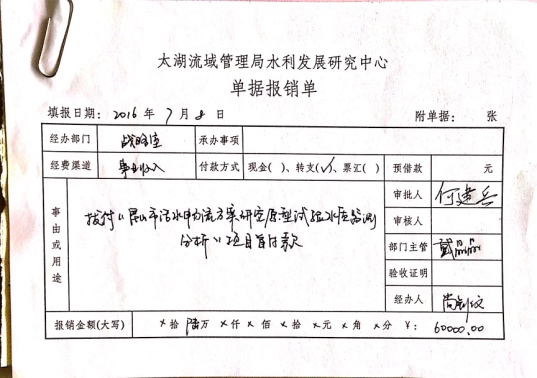 太湖流域管理局水利发展研究中心
单据报销单
填报日期: 2016 年 7 月 8 日 附单据: 张
经办部门 战略室 承办事项
经费渠道 事业收入 付款方式 现金( )、转支(✓)、票汇( ) 预借款 元
事由或用途 拨付《昆山市活水畅流方案研究原型试验水质监测
分析》项目首付款
审批人 何建兵
审核人
部门主管 戴晶晶
验收证明
经办人 尚钊仪
报销金额(大写) ×拾 陆万 ×仟 ×佰 ×拾 ×元 ×角 ×分 ¥: 60000.00